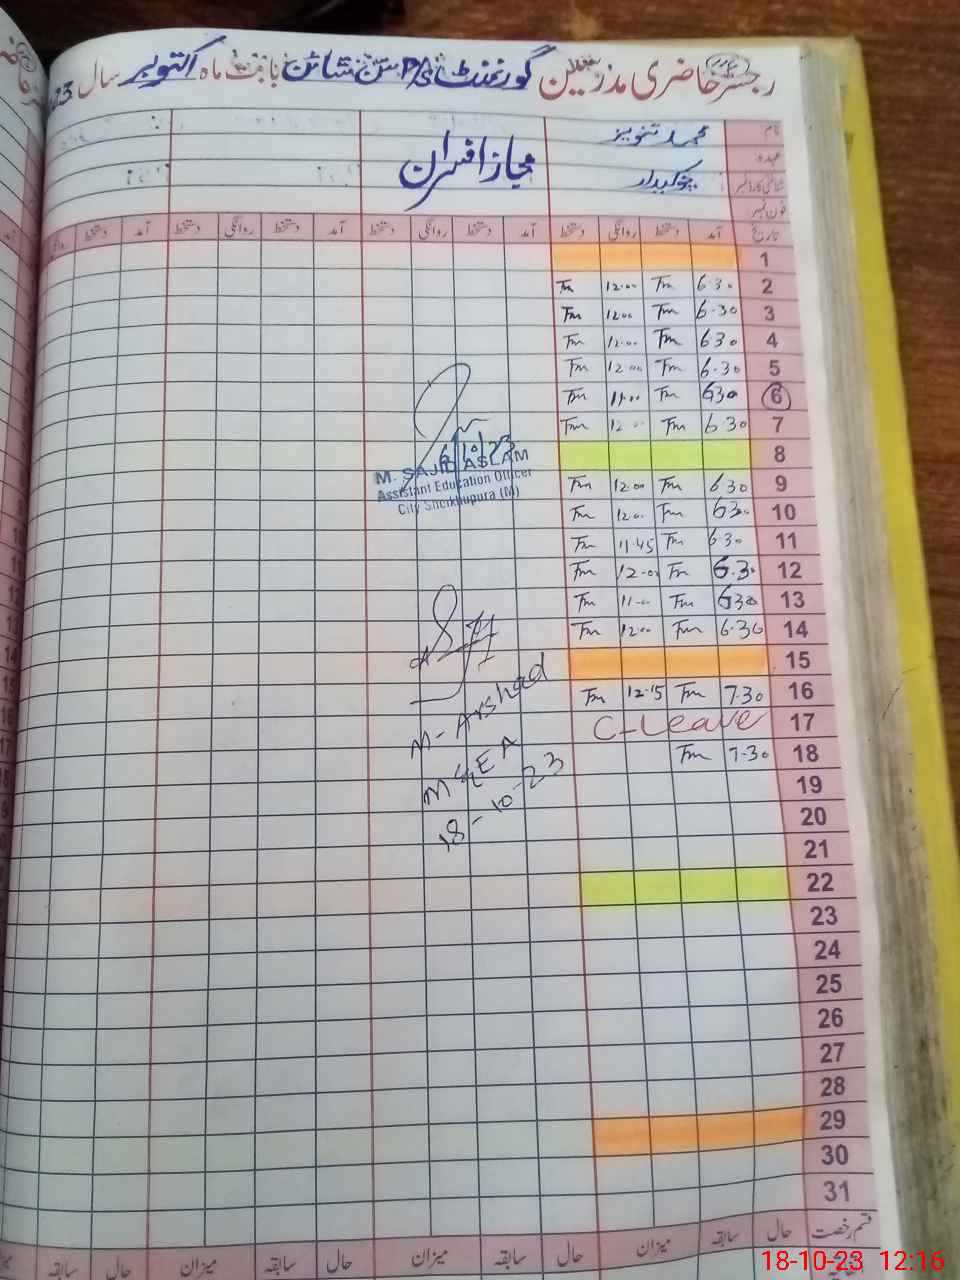 رجسٹر حاضری مدرسین گورنمنٹ P/S سن شائن بابت ماہ اکتوبر سال 23
نام محمد تنویر
عہدہ
شناختی کارڈ نمبر چوکیدار
فون نمبر
مجاز افسران
تاریخ آمد دستخط روانگی دستخط آمد دستخط روانگی دستخط آمد دستخط روانگی دستخط آمد دستخط روانگی
1
2 6.30 Tm 12.00 Tm
3 6.30 Tm 12.00 Tm
4 6.30 Tm 12.00 Tm
5 6.30 Tm 12.00 Tm
6 6.30 Tm 11.00 Tm
7 6.30 Tm 12.00 Tm
8
9 6.30 Tm 12.00 Tm
10 6.30 Tm 12.00 Tm
11 6.30 Tm 11.45 Tm
12 6.30 Tm 12.00 Tm
13 6.30 Tm 11.00 Tm
14 6.30 Tm 12.00 Tm
15
16 7.30 Tm 12.15 Tm
17 C-Leave
18 7.30 Tm
19
20
21
22
23
24
25
26
27
28
29
30
31
6/10/23
M. SAJID ASLAM
Assistant Education Officer
City Sheikhupura (M)
M-Arshad
MEA
18-10-23
قسم رخصت حال سابقہ میزان حال سابقہ میزان حال سابقہ میزان حال سابقہ
18-10-23 12:16